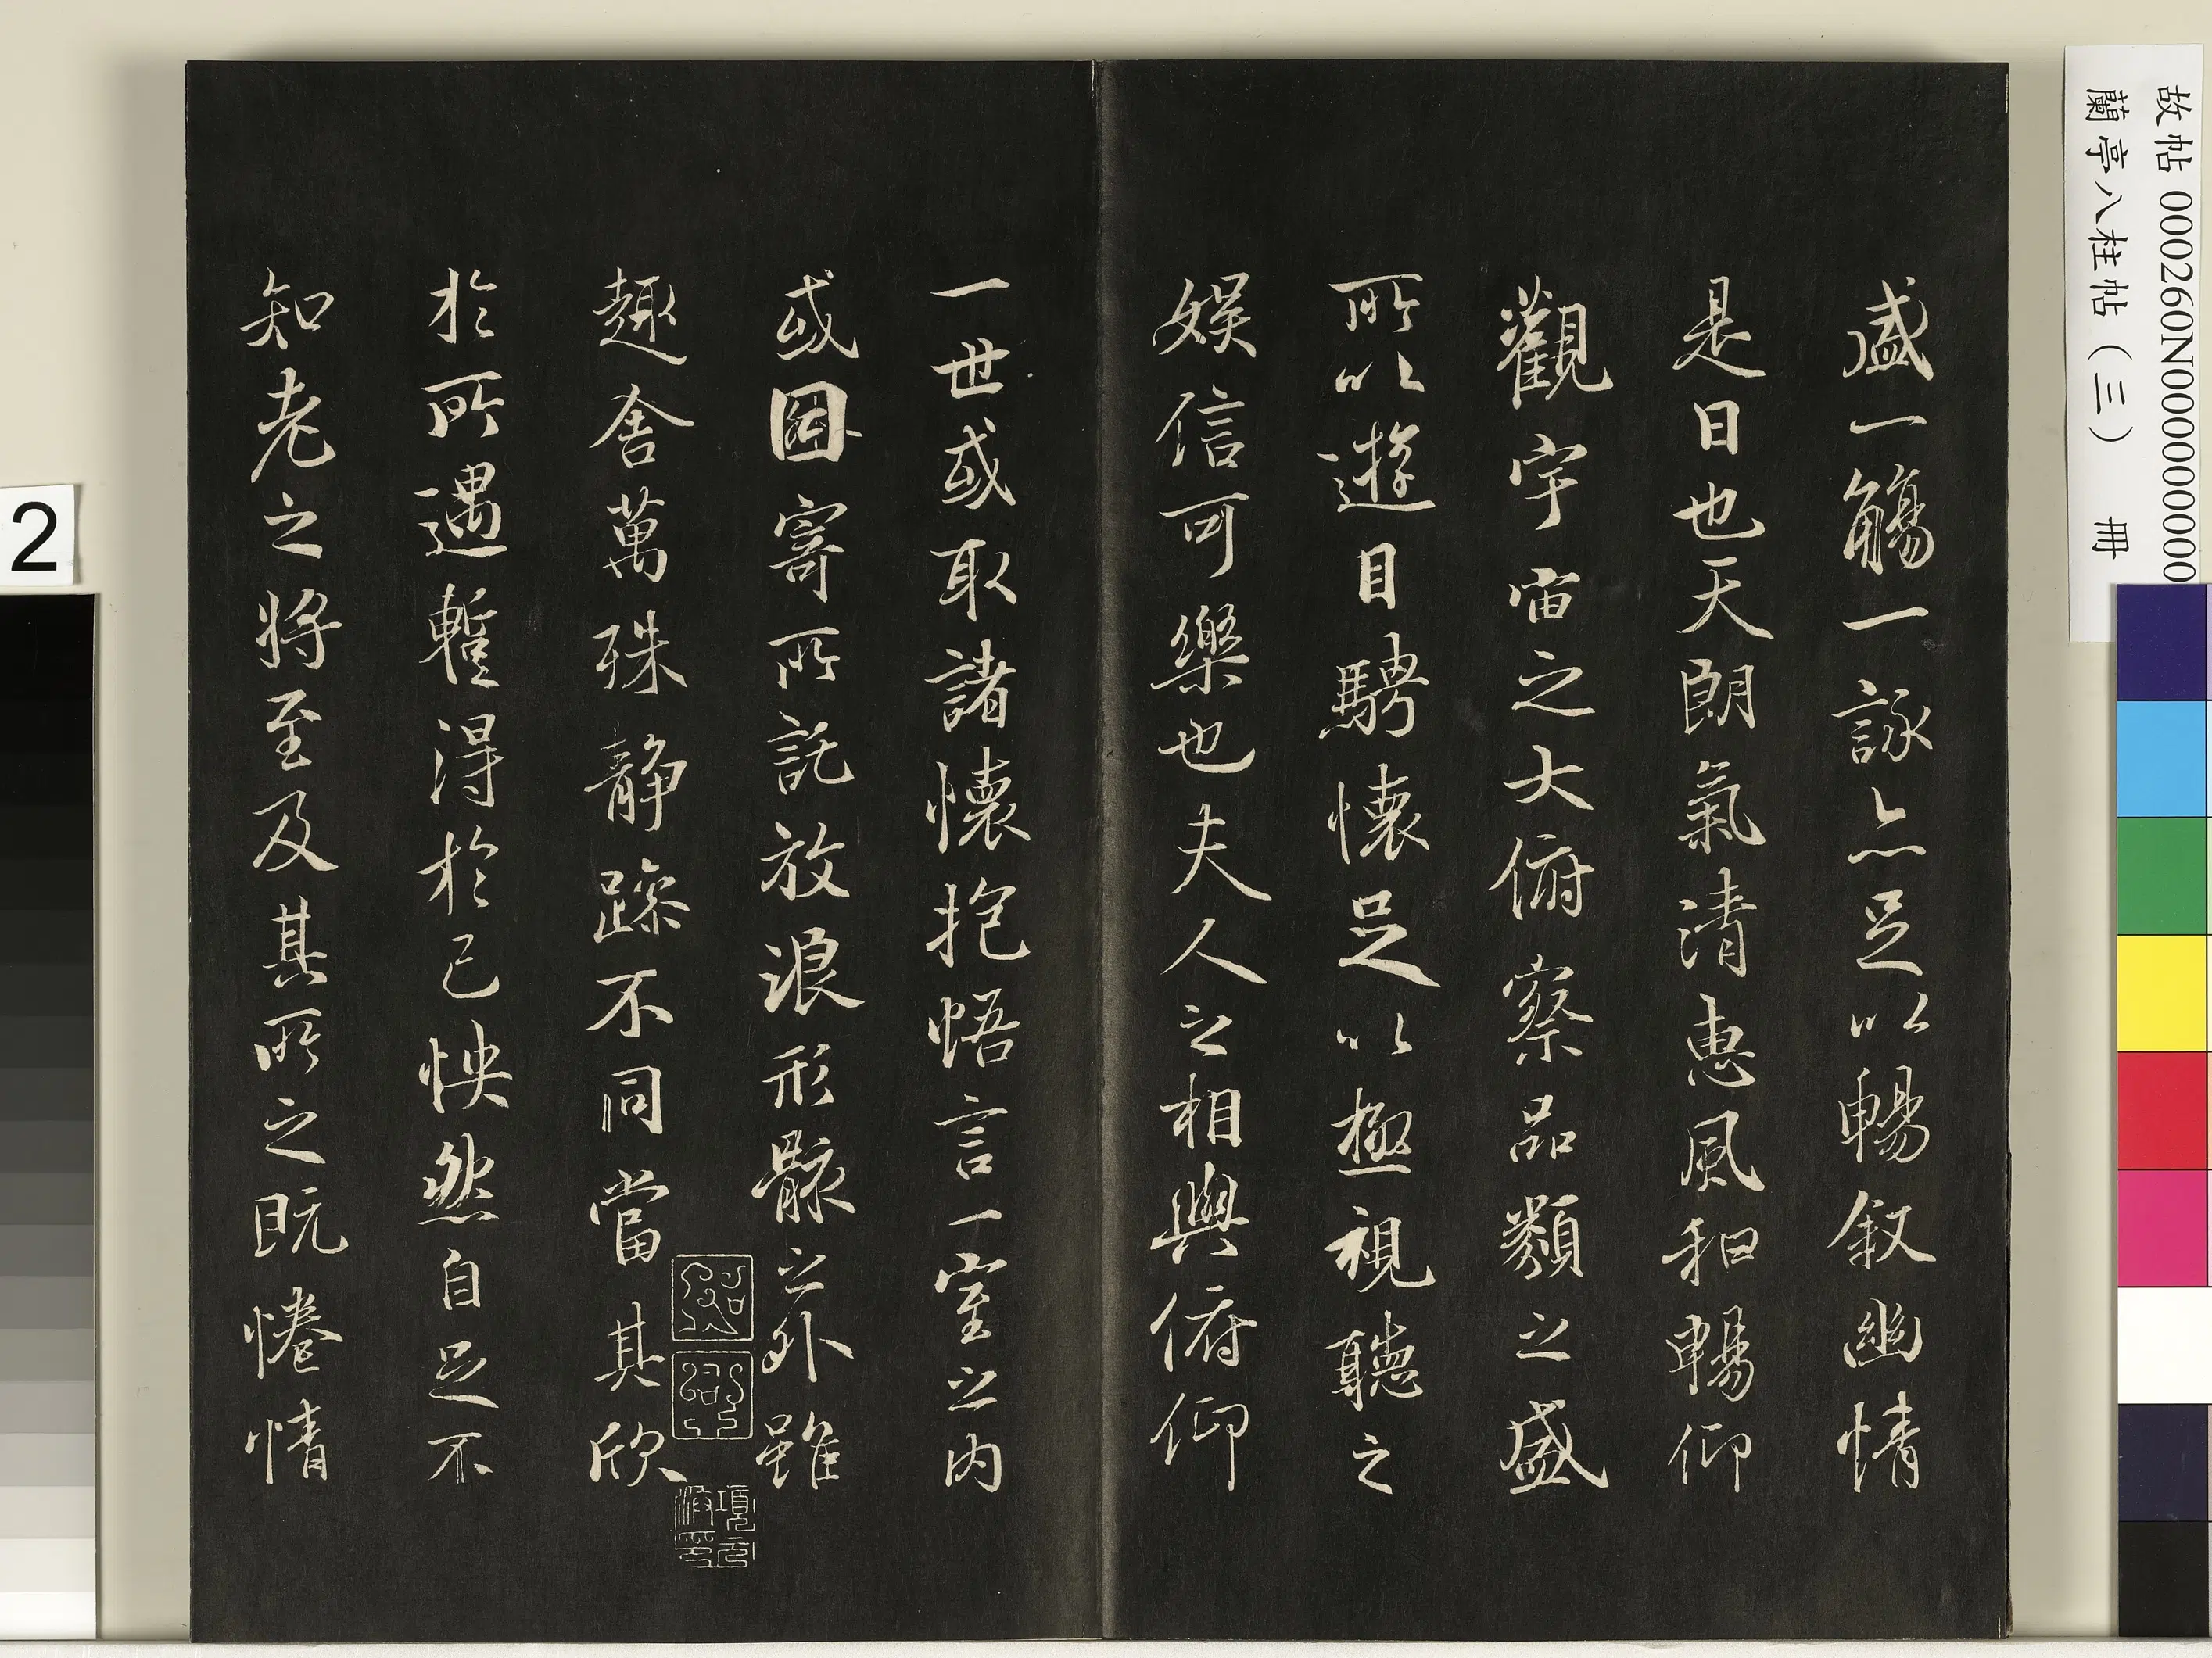 盛一觴一詠亦足以暢叙幽情
是日也天朗氣清惠風和暢仰
觀宇宙之大俯察品類之盛
所以遊目騁懷足以極視聽之
娛信可樂也夫人之相與俯仰
一世或取諸懷抱悟言一室之內
或因寄所託放浪形骸之外雖
趣舍萬殊靜躁不同當其欣
於所遇暫得於己怏然自足不
知老之將至及其所之既惓情
故帖 000260N000000000
蘭亭八柱帖(三) 冊
2